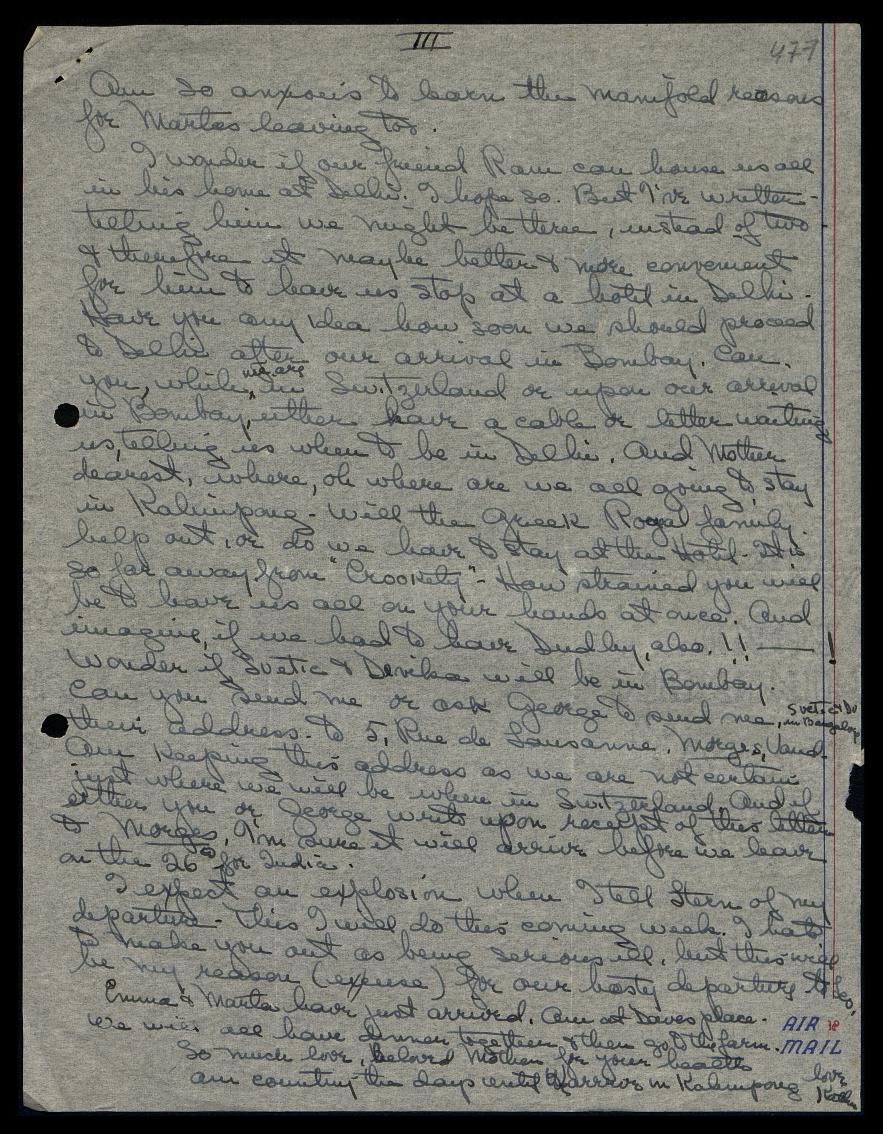 III
477
Am so anxoeis to learn the manifold reasons
for Martas leaving too.
I wonder if our friend Ram can house us all
in his home at Delhi. I hope so. But I've written -
telling him we might be three, instead of two -
& therefore it maybe better & more convenient
for him to have us stop at a hotel in Delhi -
Have you any idea how soon we should proceed
to Delhi after our arrival in Bombay. Can
you, while we are in Switzerland or upon our arrival
in Bombay, either have a cable or letter waiting
us, telling us when to be in Delhi. And Mother
dearest, where, oh where are we all going to stay
in Kalimpong - Will the Greek Royal family
help out, or do we have to stay at the Hotel - It is
so far away from "Crookety" - How strained you will
be to have us all on your hands at once. And
imagine, if we had to have Dudley, also. !! — !
Wonder if Svetic & Devika will be in Bombay.
Can you send me or ask George to send me, Svetic & Dv in Bangalore
their address - to 5, Rue de Lausanne, Morges, Vaud -
Am keeping this address as we are not certain
just where we will be when in Switzerland. And if
either you or George write upon receipt of this letter
to Morges, I'm sure it will arrive before we leave
on the 26th for India.
I expect an explosion when I tell Stern of my
departure - this I will do this coming week. I hate
to make you out as being serious ill, but this will
be my reason (expuse) for our hasty departure to
Emma & Marta have just arrived. Am at Daves place -
We will all have dinner together & then go to the farm.
So much love, beloved Mother for your health
am counting the days until we arrive in Kalimpong
love
AIR
MAIL